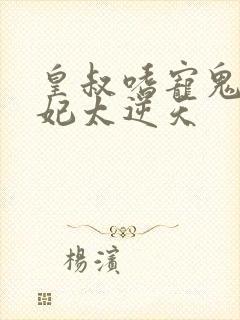 皇叔嗜寵鬼
妃太逆天
楊濱